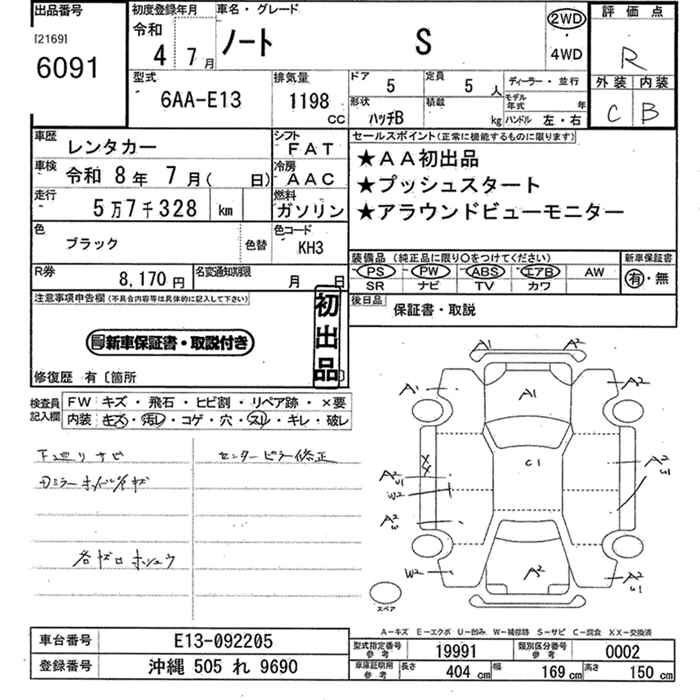 出品番号
[2169]
6091
初度登録年月
令和
4 7月
車名・グレード
ノート S
2WD
・
4WD
評価点
R
外装 内装
C B
型式
6AA-E13
排気量
1198 CC
ドア
5
定員
5 人
形状
ハッチB
積載
kg
ディーラー・並行
モデル年式 年
ハンドル 左・右
車歴
レンタカー
シフト
FAT
車検
令和 8年 7月( 日)
冷房
AAC
走行
5万7千328 km
燃料
ガソリン
色
ブラック
色替
色コード
KH3
R券
8,170円
名変通知期限
月 日
セールスポイント(正常に機能するものに限ります)
★AA初出品
★プッシュスタート
★アラウンドビューモニター
装備品 (純正品に限り○をつけてください)
PS PW ABS エアB AW
SR ナビ TV カワ
新車保証書
有・無
後日品
保証書・取説
注意事項申告欄(不具合内容等は具体的に記入して下さい)
新車保証書・取説付き
初出品
修復歴 有〔箇所 〕
検査員記入欄
FW キズ・飛石・ヒビ割・リペア跡・×要
内装 キズ・汚レ・コゲ・穴・スレ・キレ・破レ
センターピラー修正
A1 A2
A1 A1 A2
C1
XX
A2
U1
W2
A2
A2
W2
A2
A2
U1
スペア
A-キズ E-エクボ U-凹み W-補修跡 S-サビ C-腐食 XX-交換済
車台番号
E13-092205
登録番号
沖縄 505 れ 9690
型式指定番号
参考
19991
類別区分番号
参考
0002
車庫証明用
参考
長さ
404 cm
幅
169 cm
高さ
150 cm